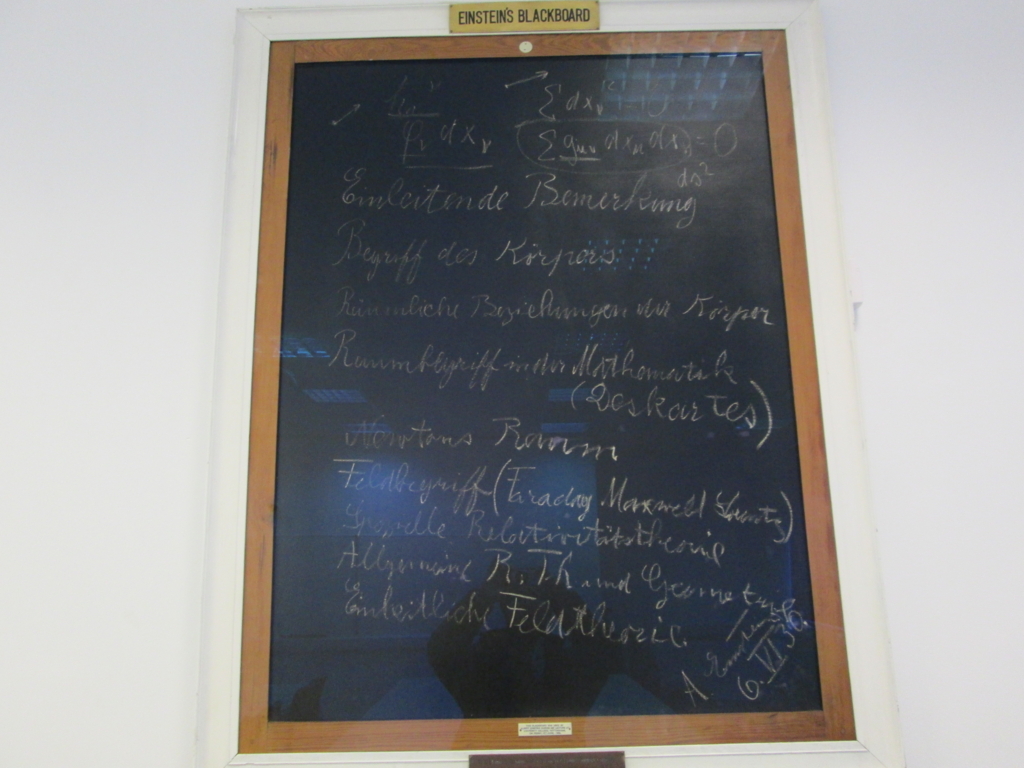 EINSTEIN'S BLACKBOARD
Σ dxν² = 0
dxν (Σ gμν dxμ dxν) = 0
ds²
Einleitende Bemerkung
Begriff des Körpers
Räumliche Beziehungen der Körper
Raumbegriff in der Mathematik
(Deskartes)
Newtons Raum
Feldbegriff (Faraday Maxwell Lorentz)
Spezielle Relativitätstheorie
Allgemeine R. Th. und Geometrie
Einheitliche Feldtheorie.
A. Einstein
6. VI 30.